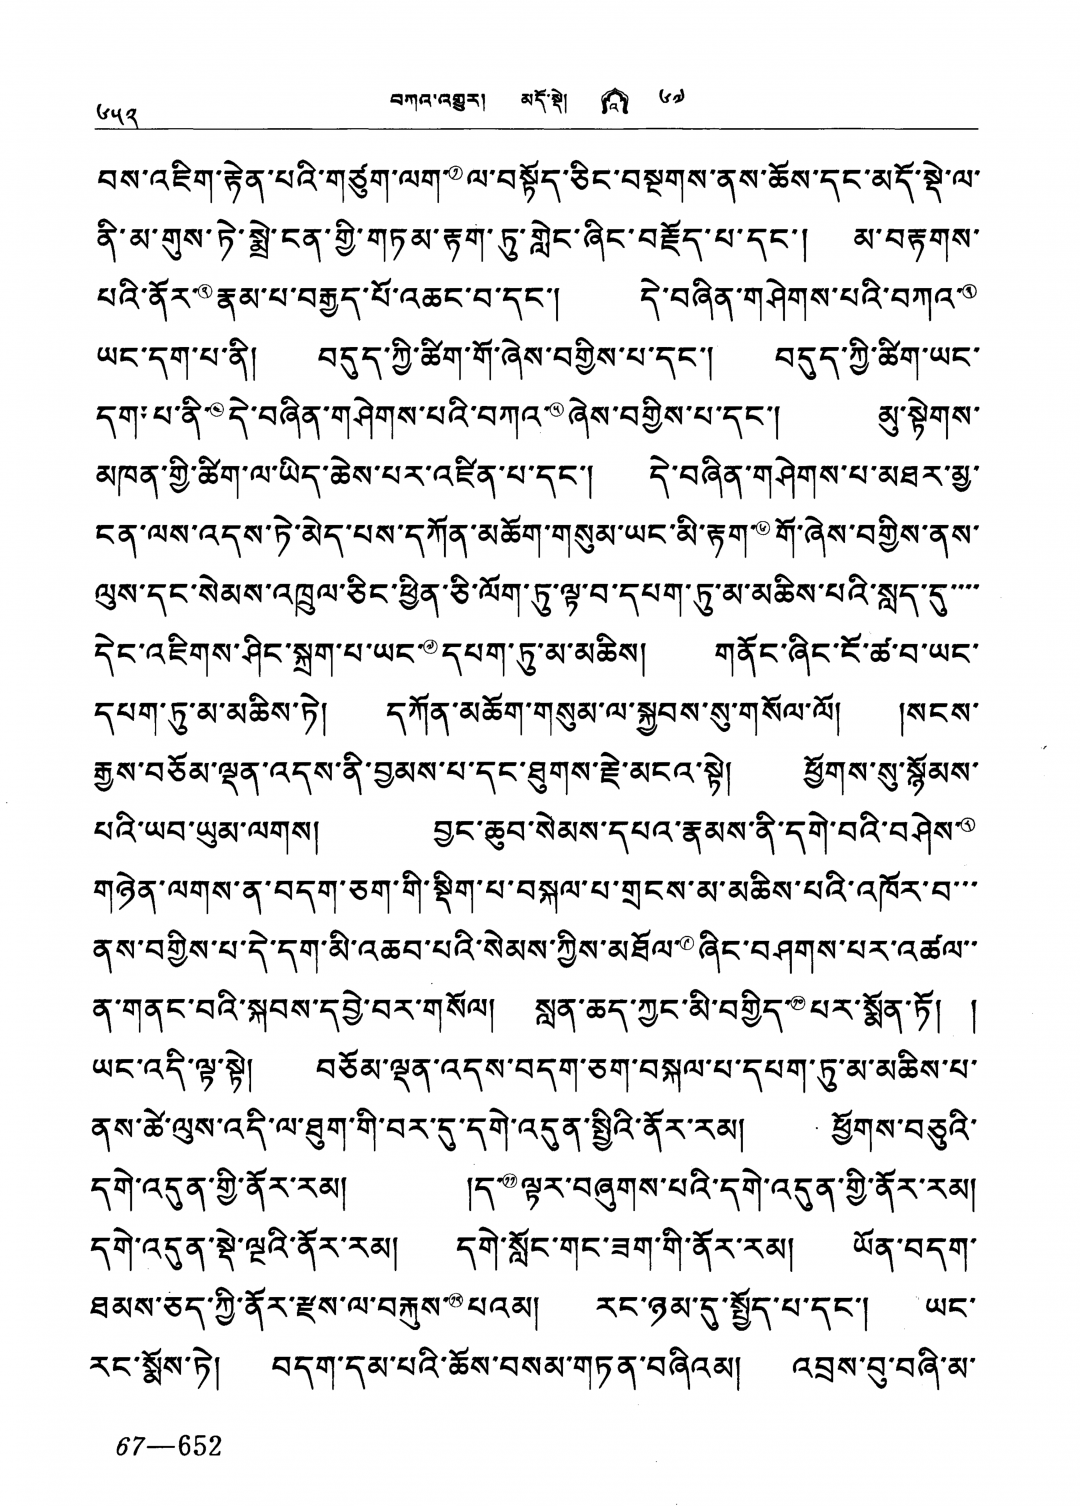 ༦༥༢ བཀའ་འགྱུར། མདོ་སྡེ། ༦༧
བས་འཇིག་རྟེན་པའི་གཙུག་ལག་① ལ་བསྟོད་ཅིང་བསྔགས་ནས་ཆོས་དང་མདོ་སྡེ་ལ་
ནི་མ་གུས་ཏེ་སྨྲེ་ངན་གྱི་གཏམ་རྟག་ཏུ་གླེང་ཞིང་བརྗོད་པ་དང་། མ་བརྟགས་
པའི་ནོར་② རྣམ་པ་བརྒྱད་པོ་འཆང་བ་དང་། དེ་བཞིན་གཤེགས་པའི་བཀའ་③
ཡང་དག་པ་ནི། བདུད་ཀྱི་ཚིག་གོ་ཞེས་བགྱིས་པ་དང་། བདུད་ཀྱི་ཚིག་ཡང་
དག་པ་ནི་④ དེ་བཞིན་གཤེགས་པའི་བཀའ་⑤ ཞེས་བགྱིས་པ་དང་། མུ་སྟེགས་
མཁན་གྱི་ཚིག་ལ་ཡིད་ཆེས་པར་འཛིན་པ་དང་། དེ་བཞིན་གཤེགས་པ་མཐར་མྱ་
ངན་ལས་འདས་ཏེ་མེད་པས་དཀོན་མཆོག་གསུམ་ཡང་མི་རྟག་⑥ གོ་ཞེས་བགྱིས་ནས་
ལུས་དང་སེམས་འཁྲུལ་ཅིང་ཕྱིན་ཅི་ལོག་ཏུ་ལྟ་བ་དཔག་ཏུ་མ་མཆིས་པའི་སླད་དུ་
དེང་འཇིགས་ཤིང་སྐྲག་པ་ཡང་⑦ དཔག་ཏུ་མ་མཆིས། གནོང་ཞིང་ངོ་ཚ་བ་ཡང་
དཔག་ཏུ་མ་མཆིས་ཏེ། དཀོན་མཆོག་གསུམ་ལ་སྐྱབས་སུ་གསོལ་ལོ། །སངས་
རྒྱས་བཅོམ་ལྡན་འདས་ནི་བྱམས་པ་དང་ཐུགས་རྗེ་མངའ་སྟེ། ཕྱོགས་སུ་སྙོམས་
པའི་ཡབ་ཡུམ་ལགས། བྱང་ཆུབ་སེམས་དཔའ་རྣམས་ནི་དགེ་བའི་བཤེས་⑧
གཉེན་ལགས་ན་བདག་ཅག་གི་སྡིག་པ་བསྐལ་པ་གྲངས་མ་མཆིས་པའི་འཁོར་བ་
ནས་བགྱིས་པ་དེ་དག་མི་འཆབ་པའི་སེམས་ཀྱིས་མཐོལ་⑨ ཞིང་བཤགས་པར་འཚལ་
ན་གནང་བའི་སྐབས་དབྱེ་བར་གསོལ། སླན་ཆད་ཀྱང་མི་བགྱིད་⑩ པར་སྨོན་ཏོ། །
ཡང་འདི་ལྟ་སྟེ། བཅོམ་ལྡན་འདས་བདག་ཅག་བསྐལ་པ་དཔག་ཏུ་མ་མཆིས་པ་
ནས་ཚེ་ལུས་འདི་ལ་ཐུག་གི་བར་དུ་དགེ་འདུན་སྤྱིའི་ནོར་རམ། ཕྱོགས་བཅུའི་
དགེ་འདུན་གྱི་ནོར་རམ། །ད་⑪ ལྟར་བཞུགས་པའི་དགེ་འདུན་གྱི་ནོར་རམ།
དགེ་འདུན་སྡེ་ལྔའི་ནོར་རམ། དགེ་སློང་གང་ཟག་གི་ནོར་རམ། ཡོན་བདག་
ཐམས་ཅད་ཀྱི་ནོར་རྫས་ལ་བརྐུས་⑫ པའམ། རང་ཉམ་དུ་སྤྱོད་པ་དང་། ཡང་
རང་སྨོས་ཏེ། བདག་དམ་པའི་ཆོས་བསམ་གཏན་བཞིའམ། འབྲས་བུ་བཞི་མ་
67—652